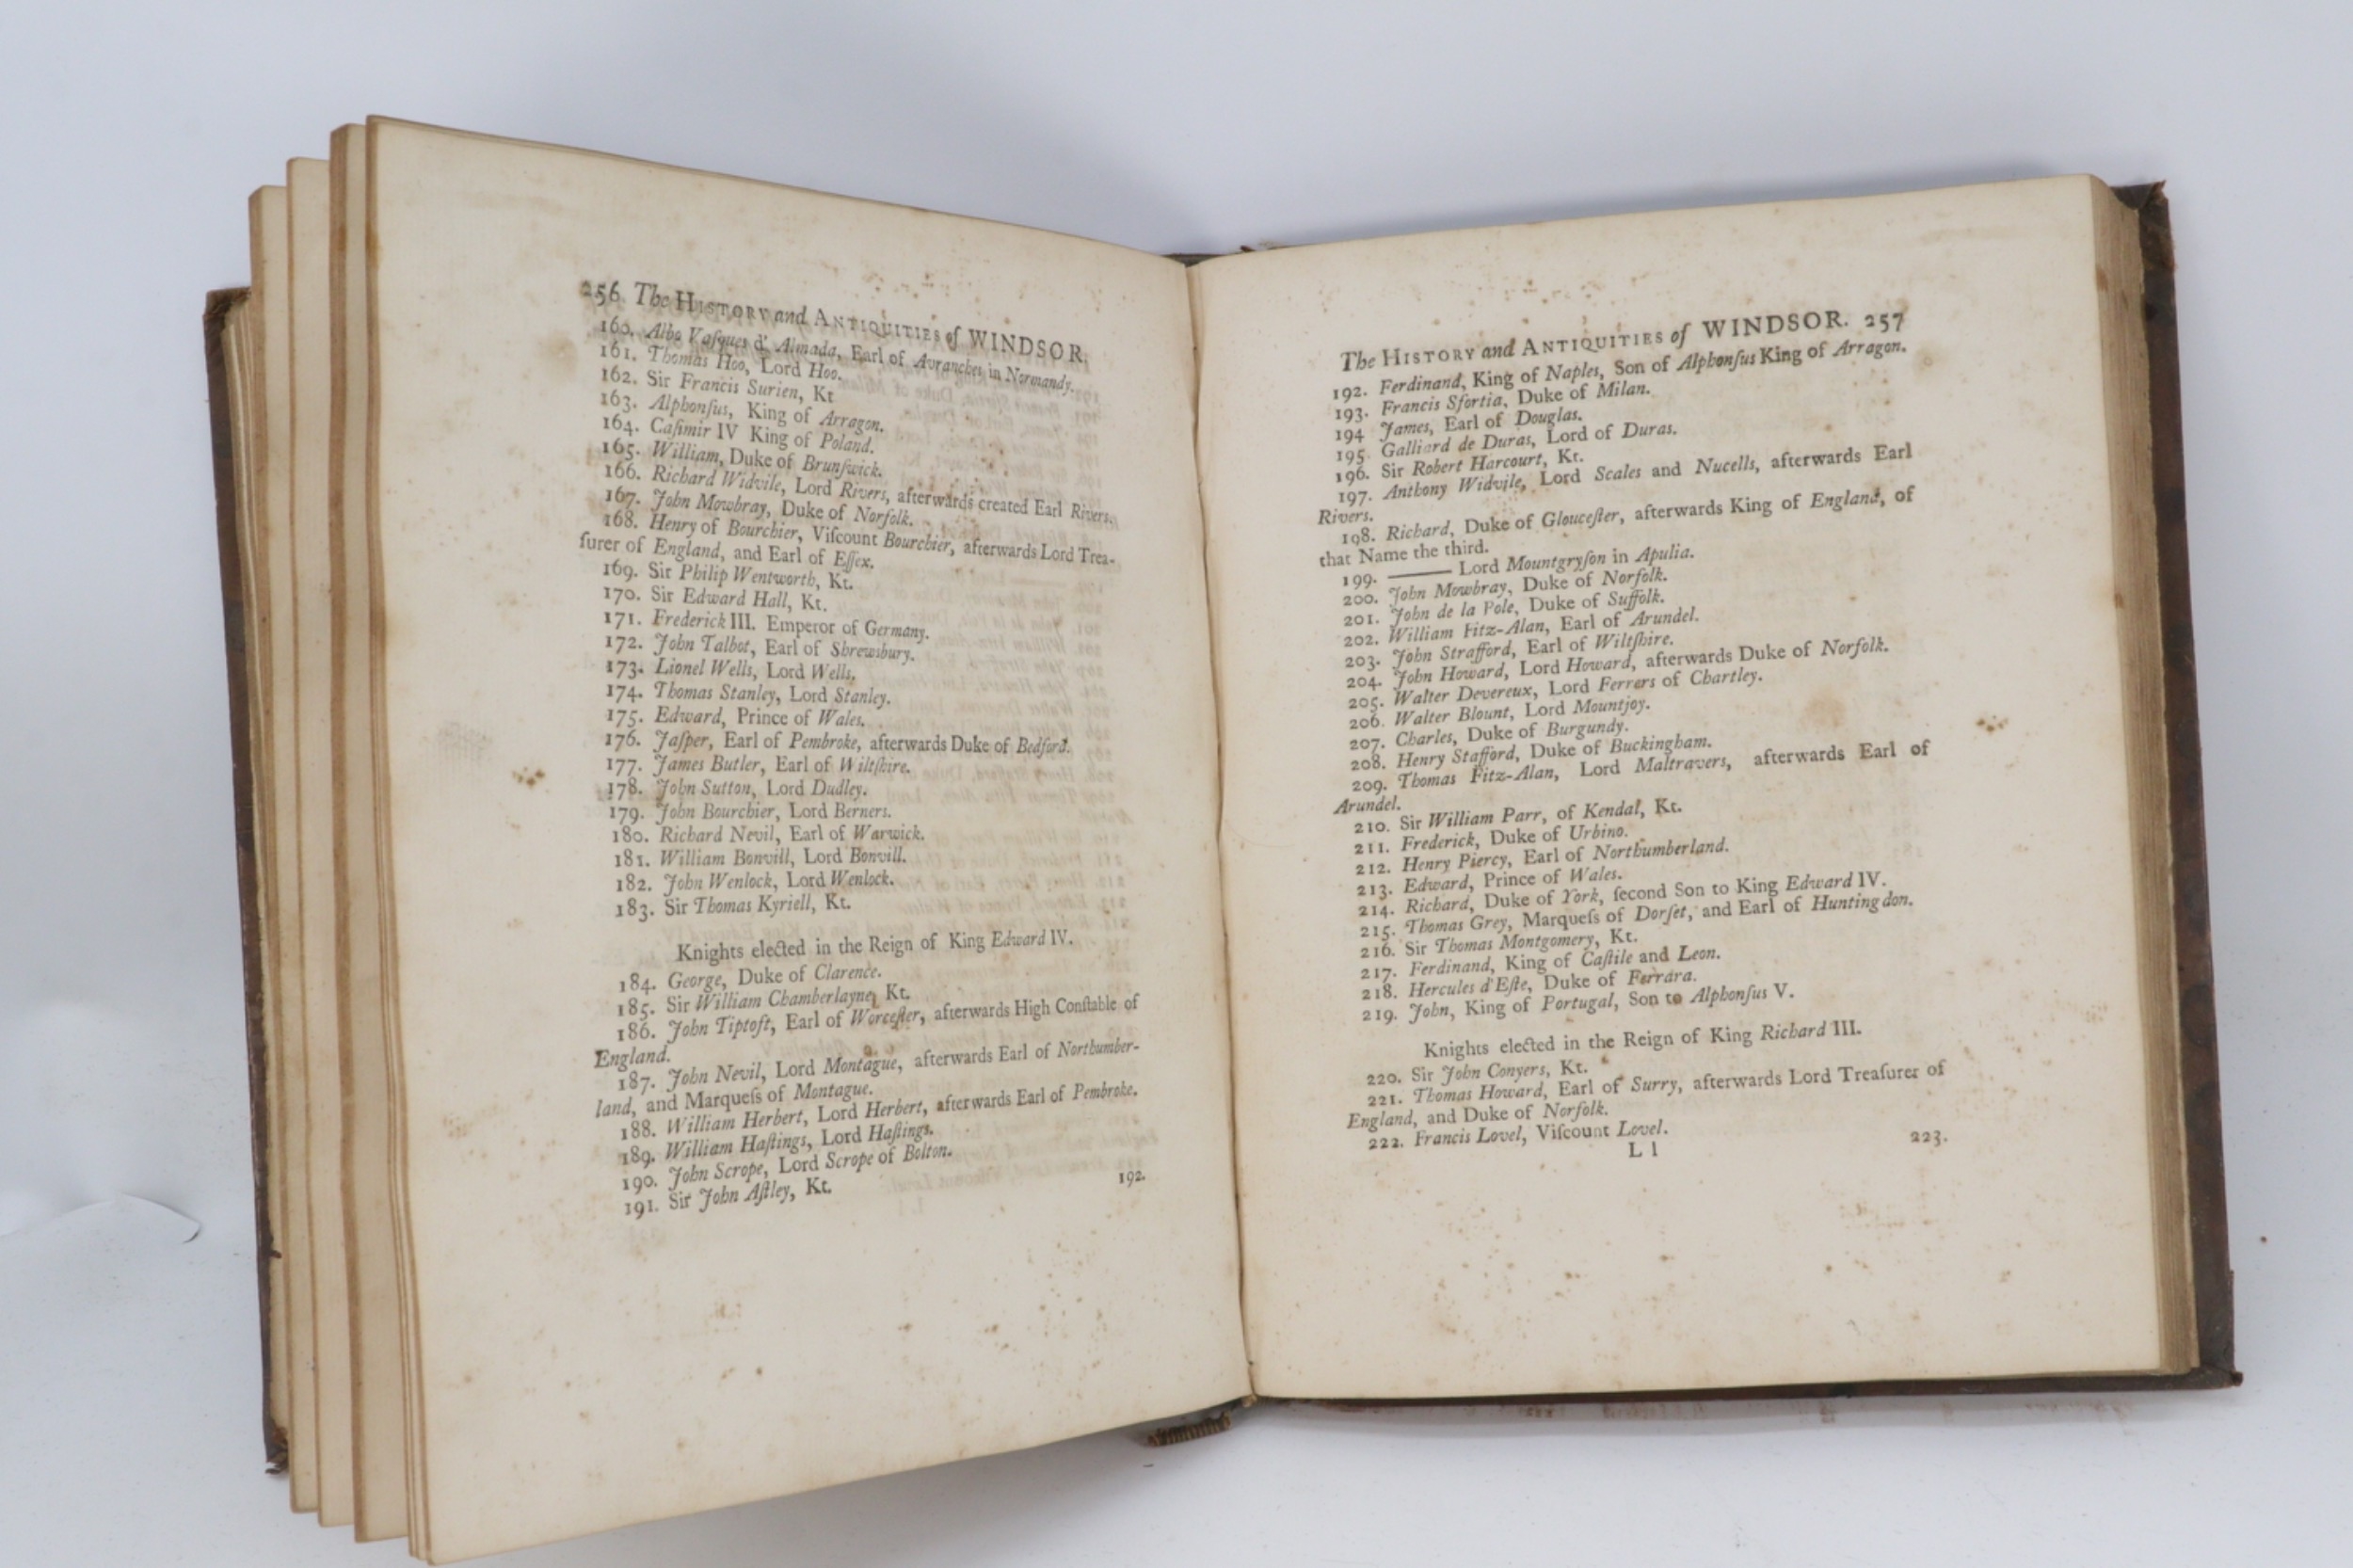 256 The HISTORY and ANTIQUITIES of WINDSOR.
160. Albo Vaſques d' Almada, Earl of Avranches in Normandy.
161. Thomas Hoo, Lord Hoo.
162. Sir Francis Surien, Kt
163. Alphonſus, King of Arragon.
164. Caſimir IV King of Poland.
165. William, Duke of Brunſwick.
166. Richard Widvile, Lord Rivers, afterwards created Earl Rivers.
167. John Mowbray, Duke of Norfolk.
168. Henry of Bourchier, Viſcount Bourchier, afterwards Lord Trea-
ſurer of England, and Earl of Eſſex.
169. Sir Philip Wentworth, Kt.
170. Sir Edward Hall, Kt.
171. Frederick III. Emperor of Germany.
172. John Talbot, Earl of Shrewsbury.
173. Lionel Wells, Lord Wells.
174. Thomas Stanley, Lord Stanley.
175. Edward, Prince of Wales.
176. Jaſper, Earl of Pembroke, afterwards Duke of Bedford.
177. James Butler, Earl of Wiltſhire.
178. John Sutton, Lord Dudley.
179. John Bourchier, Lord Berners.
180. Richard Nevil, Earl of Warwick.
181. William Bonvill, Lord Bonvill.
182. John Wenlock, Lord Wenlock.
183. Sir Thomas Kyriell, Kt.
Knights elected in the Reign of King Edward IV.
184. George, Duke of Clarence.
185. Sir William Chamberlayne, Kt.
186. John Tiptoft, Earl of Worceſter, afterwards High Conſtable of
England.
187. John Nevil, Lord Montague, afterwards Earl of Northumber-
land, and Marqueſs of Montague.
188. William Herbert, Lord Herbert, afterwards Earl of Pembroke.
189. William Haſtings, Lord Haſtings.
190. John Scrope, Lord Scrope of Bolton.
191. Sir John Aſtley, Kt.
192.
The HISTORY and ANTIQUITIES of WINDSOR. 257
192. Ferdinand, King of Naples, Son of Alphonſus King of Arragon.
193. Francis Sfortia, Duke of Milan.
194 James, Earl of Douglas.
195 Galliard de Duras, Lord of Duras.
196. Sir Robert Harcourt, Kt.
197. Anthony Widvile, Lord Scales and Nucells, afterwards Earl
Rivers.
198. Richard, Duke of Glouceſter, afterwards King of England, of
that Name the third.
199. ——— Lord Mountgryſon in Apulia.
200. John Mowbray, Duke of Norfolk.
201. John de la Pole, Duke of Suffolk.
202. William Fitz-Alan, Earl of Arundel.
203. John Strafford, Earl of Wiltſhire.
204. John Howard, Lord Howard, afterwards Duke of Norfolk.
205. Walter Devereux, Lord Ferrers of Chartley.
206. Walter Blount, Lord Mountjoy.
207. Charles, Duke of Burgundy.
208. Henry Stafford, Duke of Buckingham.
209. Thomas Fitz-Alan, Lord Maltravers, afterwards Earl of
Arundel.
210. Sir William Parr, of Kendal, Kt.
211. Frederick, Duke of Urbino.
212. Henry Piercy, Earl of Northumberland.
213. Edward, Prince of Wales.
214. Richard, Duke of York, ſecond Son to King Edward IV.
215. Thomas Grey, Marqueſs of Dorſet, and Earl of Huntingdon.
216. Sir Thomas Montgomery, Kt.
217. Ferdinand, King of Caſtile and Leon.
218. Hercules d'Eſte, Duke of Ferrara.
219. John, King of Portugal, Son to Alphonſus V.
Knights elected in the Reign of King Richard III.
220. Sir John Conyers, Kt.
221. Thomas Howard, Earl of Surry, afterwards Lord Treaſurer of
England, and Duke of Norfolk.
222. Francis Lovel, Viſcount Lovel.
L l 223.